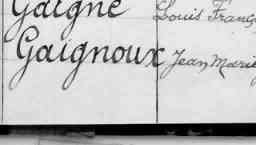 Gaigne Louis Franç
Gaignoux Jean Marie